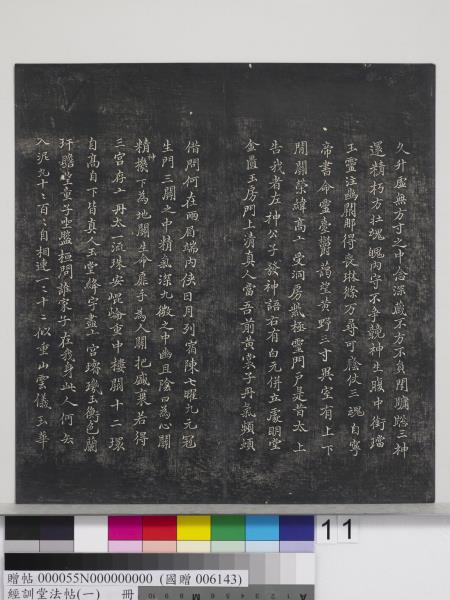 久升虛無方寸之中念深藏不方不員閉牖牕三神
還精朽方壯魂魄內守不爭競神生腹中銜璫
玉靈注幽闕那得喪琳條万尋可蔭仗三魂自寧
帝書命靈臺鬱藹望黃野三寸異室有上下
間關榮緯高玄受洞房紫極靈門戶是昔太上
告我者左神公子發神語右有白元併立處明堂
金匱玉房間上清真人當吾前黃裳子丹氣頻煩
借問何在兩眉端內俠日月列宿陳七曜九元冠
生門三關之中精氣深九微之中幽且陰口為心關
精神機下為地關生命扉手為人關把盛衰若得
三宮存玄丹太一流珠安崐崘重中樓閣十二環
自高自下皆真人玉堂絳宇盡玄宮璿璣玉衡色蘭
玕瞻望童子坐盤桓問誰家子在我身此人何去
入泥丸千〻百〻自相連一〻十〻似重山雲儀玉華
11
贈帖 000055N000000000 (國贈 006143)
經訓堂法帖(一) 冊